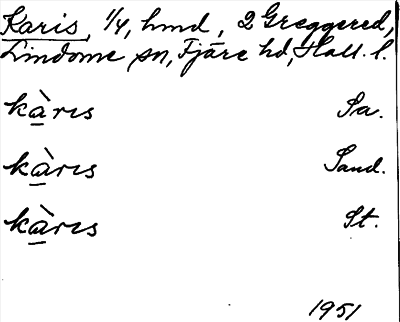 Karis, 1/4, hmd, 2 Greggered,
Lindome sn, Fjäre hd, Hall. l.
kàrıs Sa.
kàrıs Sand.
kàrıs St.
1951